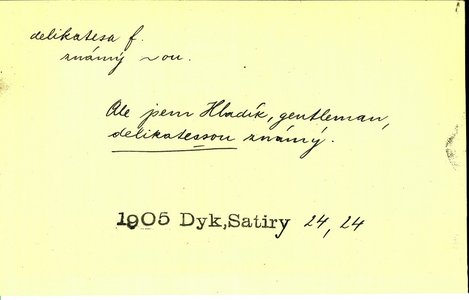 delikatesa f.
známý ~ou.
Ale jsem Hladík, gentleman,
delikatessou známý.
1905 Dyk,Satiry 24, 24